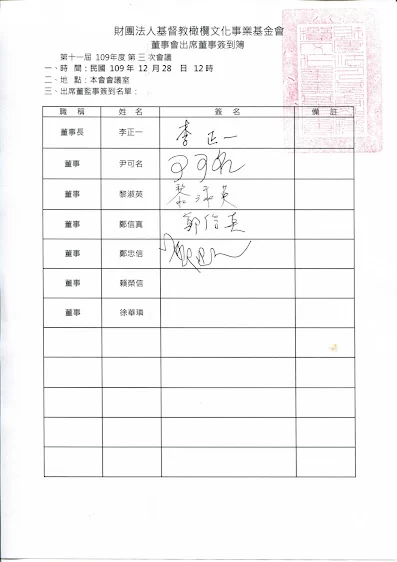 財團法人基督教橄欖文化事業基金會
董事會出席董事簽到簿
第十一屆 109年度 第三次會議
一、時 間：民國 109 年 12 月 28 日 12時
二、地 點：本會會議室
三、出席董監事簽到名單：
職 稱 姓 名 簽 名 備 註
董事長 李正一 李正一
董事 尹可名 尹可名
董事 黎淑英 黎淑英
董事 鄭信真 鄭信真
董事 鄭忠信
董事 賴榮信
董事 徐華瑱